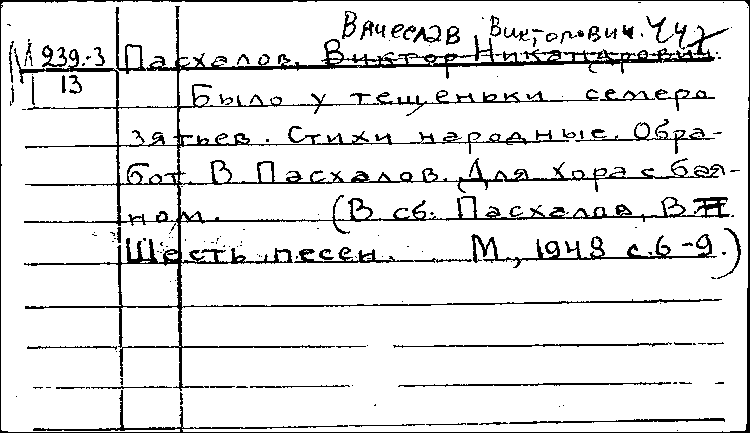 Вячеслав Викторович.
М 239-3 Пасхалов, Виктор Никандрович.
13 Было у тещеньки семеро
зятьев. Стихи народные. Обра-
бот. В. Пасхалов. Для хора с бая-
ном. (В сб. Пасхалов, В.Н.
Шесть песен. М., 1948 с.6-9.)